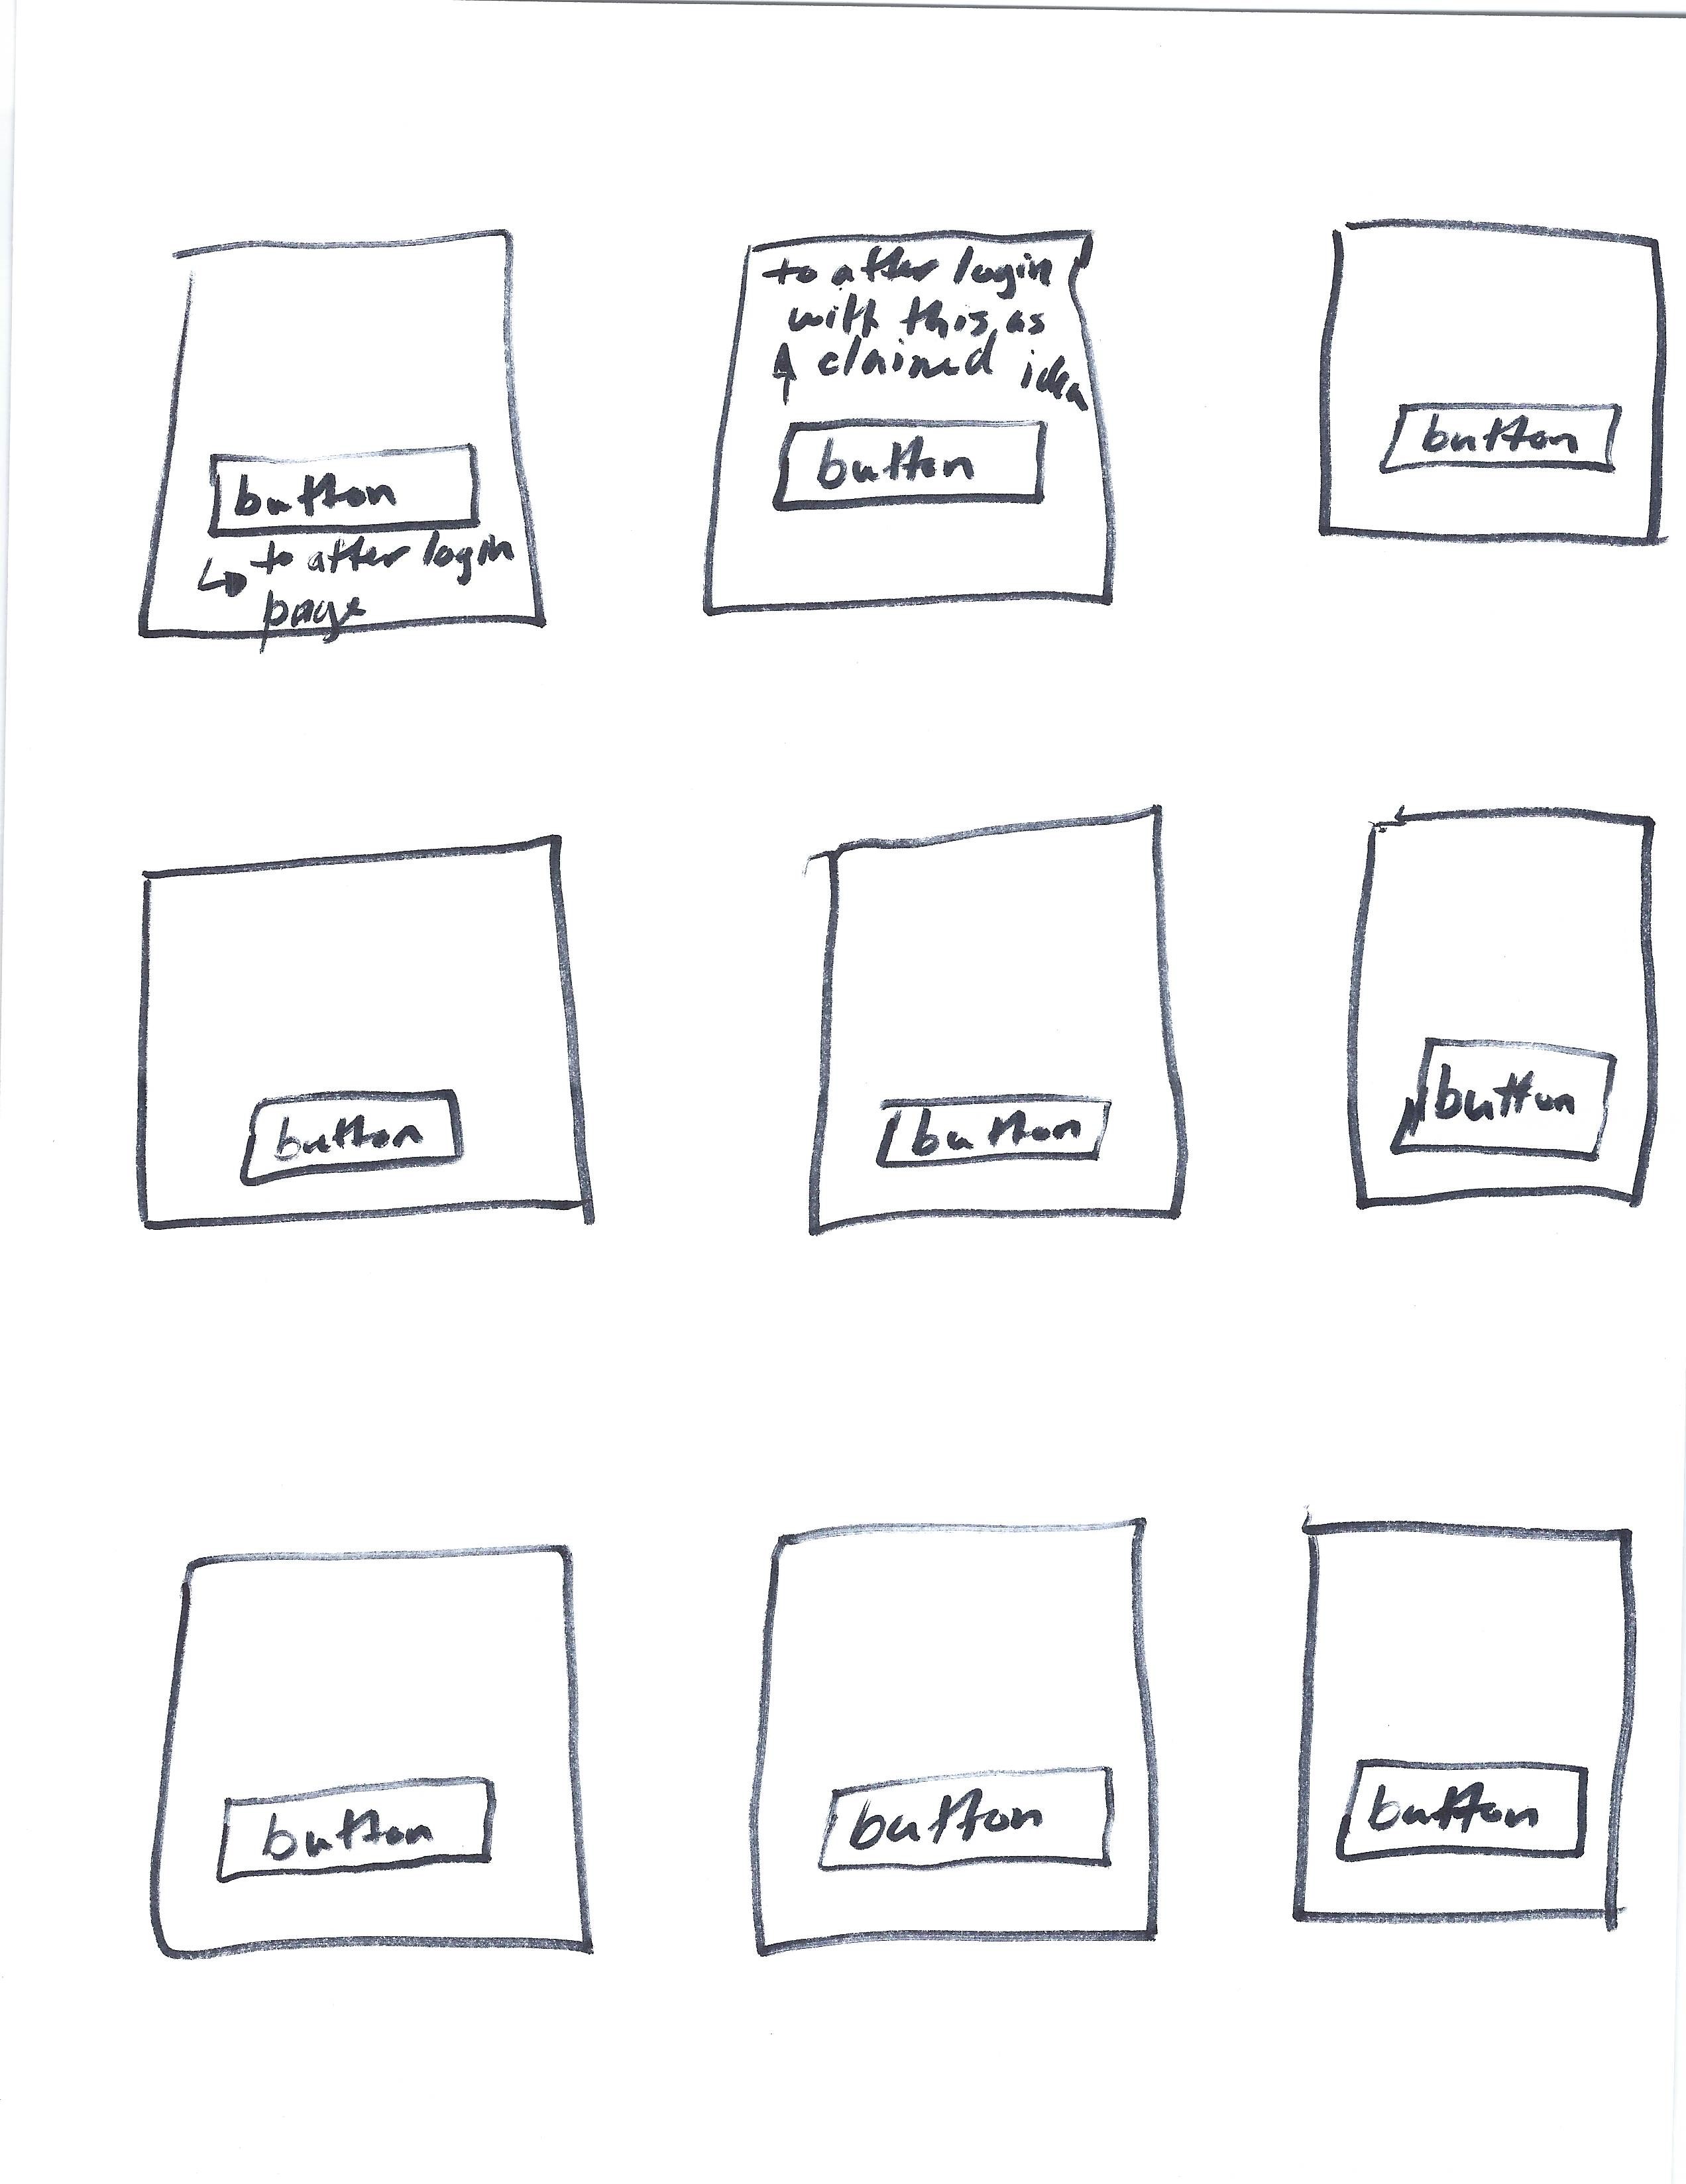 button
to after login
page
to after login
with this as
claimed idea
button
button
button
button
button
button
button
button